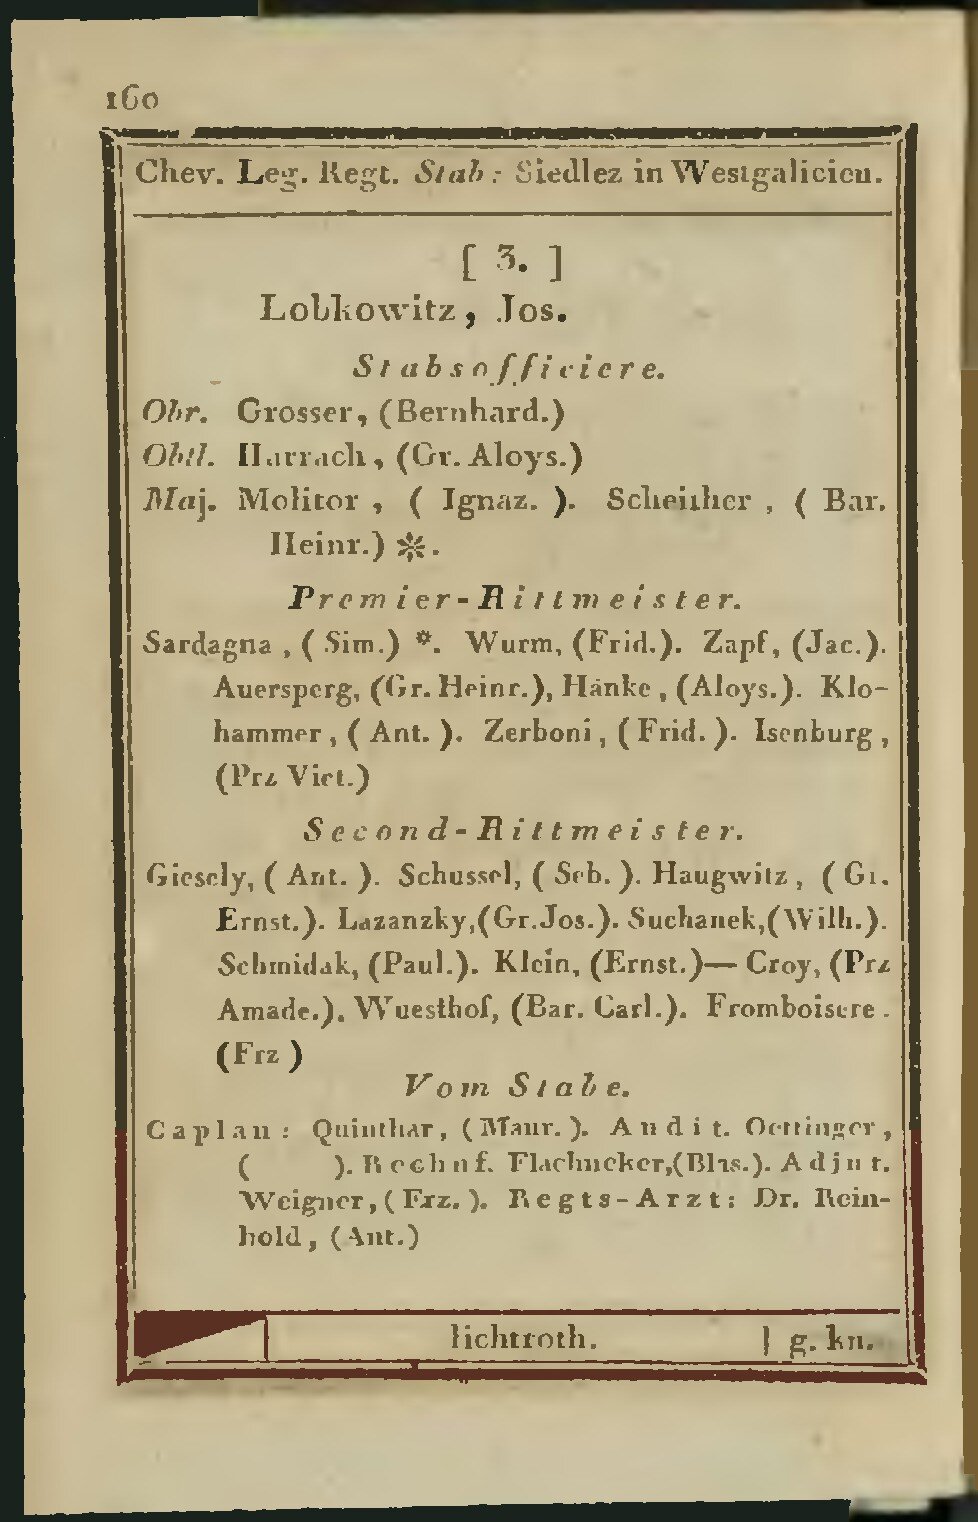 160
Chev. Leg. Regt. Stab: Siedlez in Westgalicien.
[ 3. ]
Lobkowitz, Jos.
Stabsofficiere.
Obr. Grosser, (Bernhard.)
Obtl. Harrach, (Gr. Aloys.)
Maj. Molitor, ( Ignaz. ). Scheither, ( Bar.
Heinr.) *.
Premier-Rittmeister.
Sardagna, ( Sim.) *. Wurm, (Frid.). Zapf, (Jac.).
Auersperg, (Gr. Heinr.), Hanke, (Aloys.). Klo-
hammer, ( Ant. ). Zerboni, ( Frid. ). Isenburg,
(Prz Vict.)
Second-Rittmeister.
Giesely, ( Ant. ). Schussel, ( Seb. ). Haugwitz, ( Gr.
Ernst.). Lazanzky,(Gr.Jos.). Suchanek,(Wilh.).
Schmidak, (Paul.). Klein, (Ernst.)— Croy, (Prz
Amade.). Wuesthof, (Bar. Carl.). Fromboisere.
(Frz )
Vom Stabe.
Caplan: Quinthar, ( Maur. ). Audit. Oettinger,
( ). Rechnf. Flachnecker,(Blas.). Adjut.
Weigner, ( Frz. ). Regts-Arzt: Dr. Rein-
hold, (Ant.)
lichtroth. | g. kn.